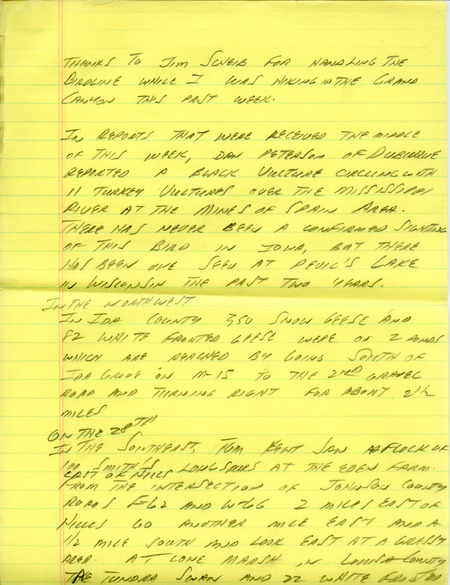 THANKS TO JIM SCHEIB FOR HANDLING THE
BIRDLINE WHILE I WAS HIKING IN THE GRAND
CANYON THIS PAST WEEK.
IN REPORTS THAT WERE RECEIVED THE MIDDLE
OF THIS WEEK, DAN PETERSON OF DUBUQUE
REPORTED A BLACK VULTURE CIRCLING WITH
11 TURKEY VULTURES OVER THE MISSISSIPPI
RIVER AT THE MINES OF SPAIN AREA.
THERE HAS NEVER BEEN A CONFIRMED SIGHTING
OF THIS BIRD IN IOWA, BUT THERE
HAS BEEN ONE SEEN AT DEVIL'S LAKE
IN WISCONSIN THE PAST TWO YEARS.
IN THE NORTHWEST
IN IDA COUNTY 350 SNOW GEESE AND
82 WHITE FRONTED GEESE WERE ON 2 PONDS
WHICH ARE REACHED BY GOING SOUTH OF
IDA GROVE ON M-15 TO THE 2ND GRAVEL
ROAD AND TURNING RIGHT FOR ABOUT 2 1/2
MILES
ON THE 28TH
IN THE SOUTHEAST, TOM KENT SAW A FLOCK OF
100 SMITH'S LONGSPURS AT THE EDEN FARM
EAST OF HILLS
FROM THE INTERSECTION OF JOHNSON COUNTY
ROADS F62 AND W66 2 MILES EAST OF
HILLS GO ANOTHER MILE EAST AND A
1/2 MILE SOUTH AND LOOK EAST AT A GRASSY
AREA. AT CONE MARSH IN LOUISA COUNTY
THE TUNDRA SWAN AND 22 WHITE FRONTED